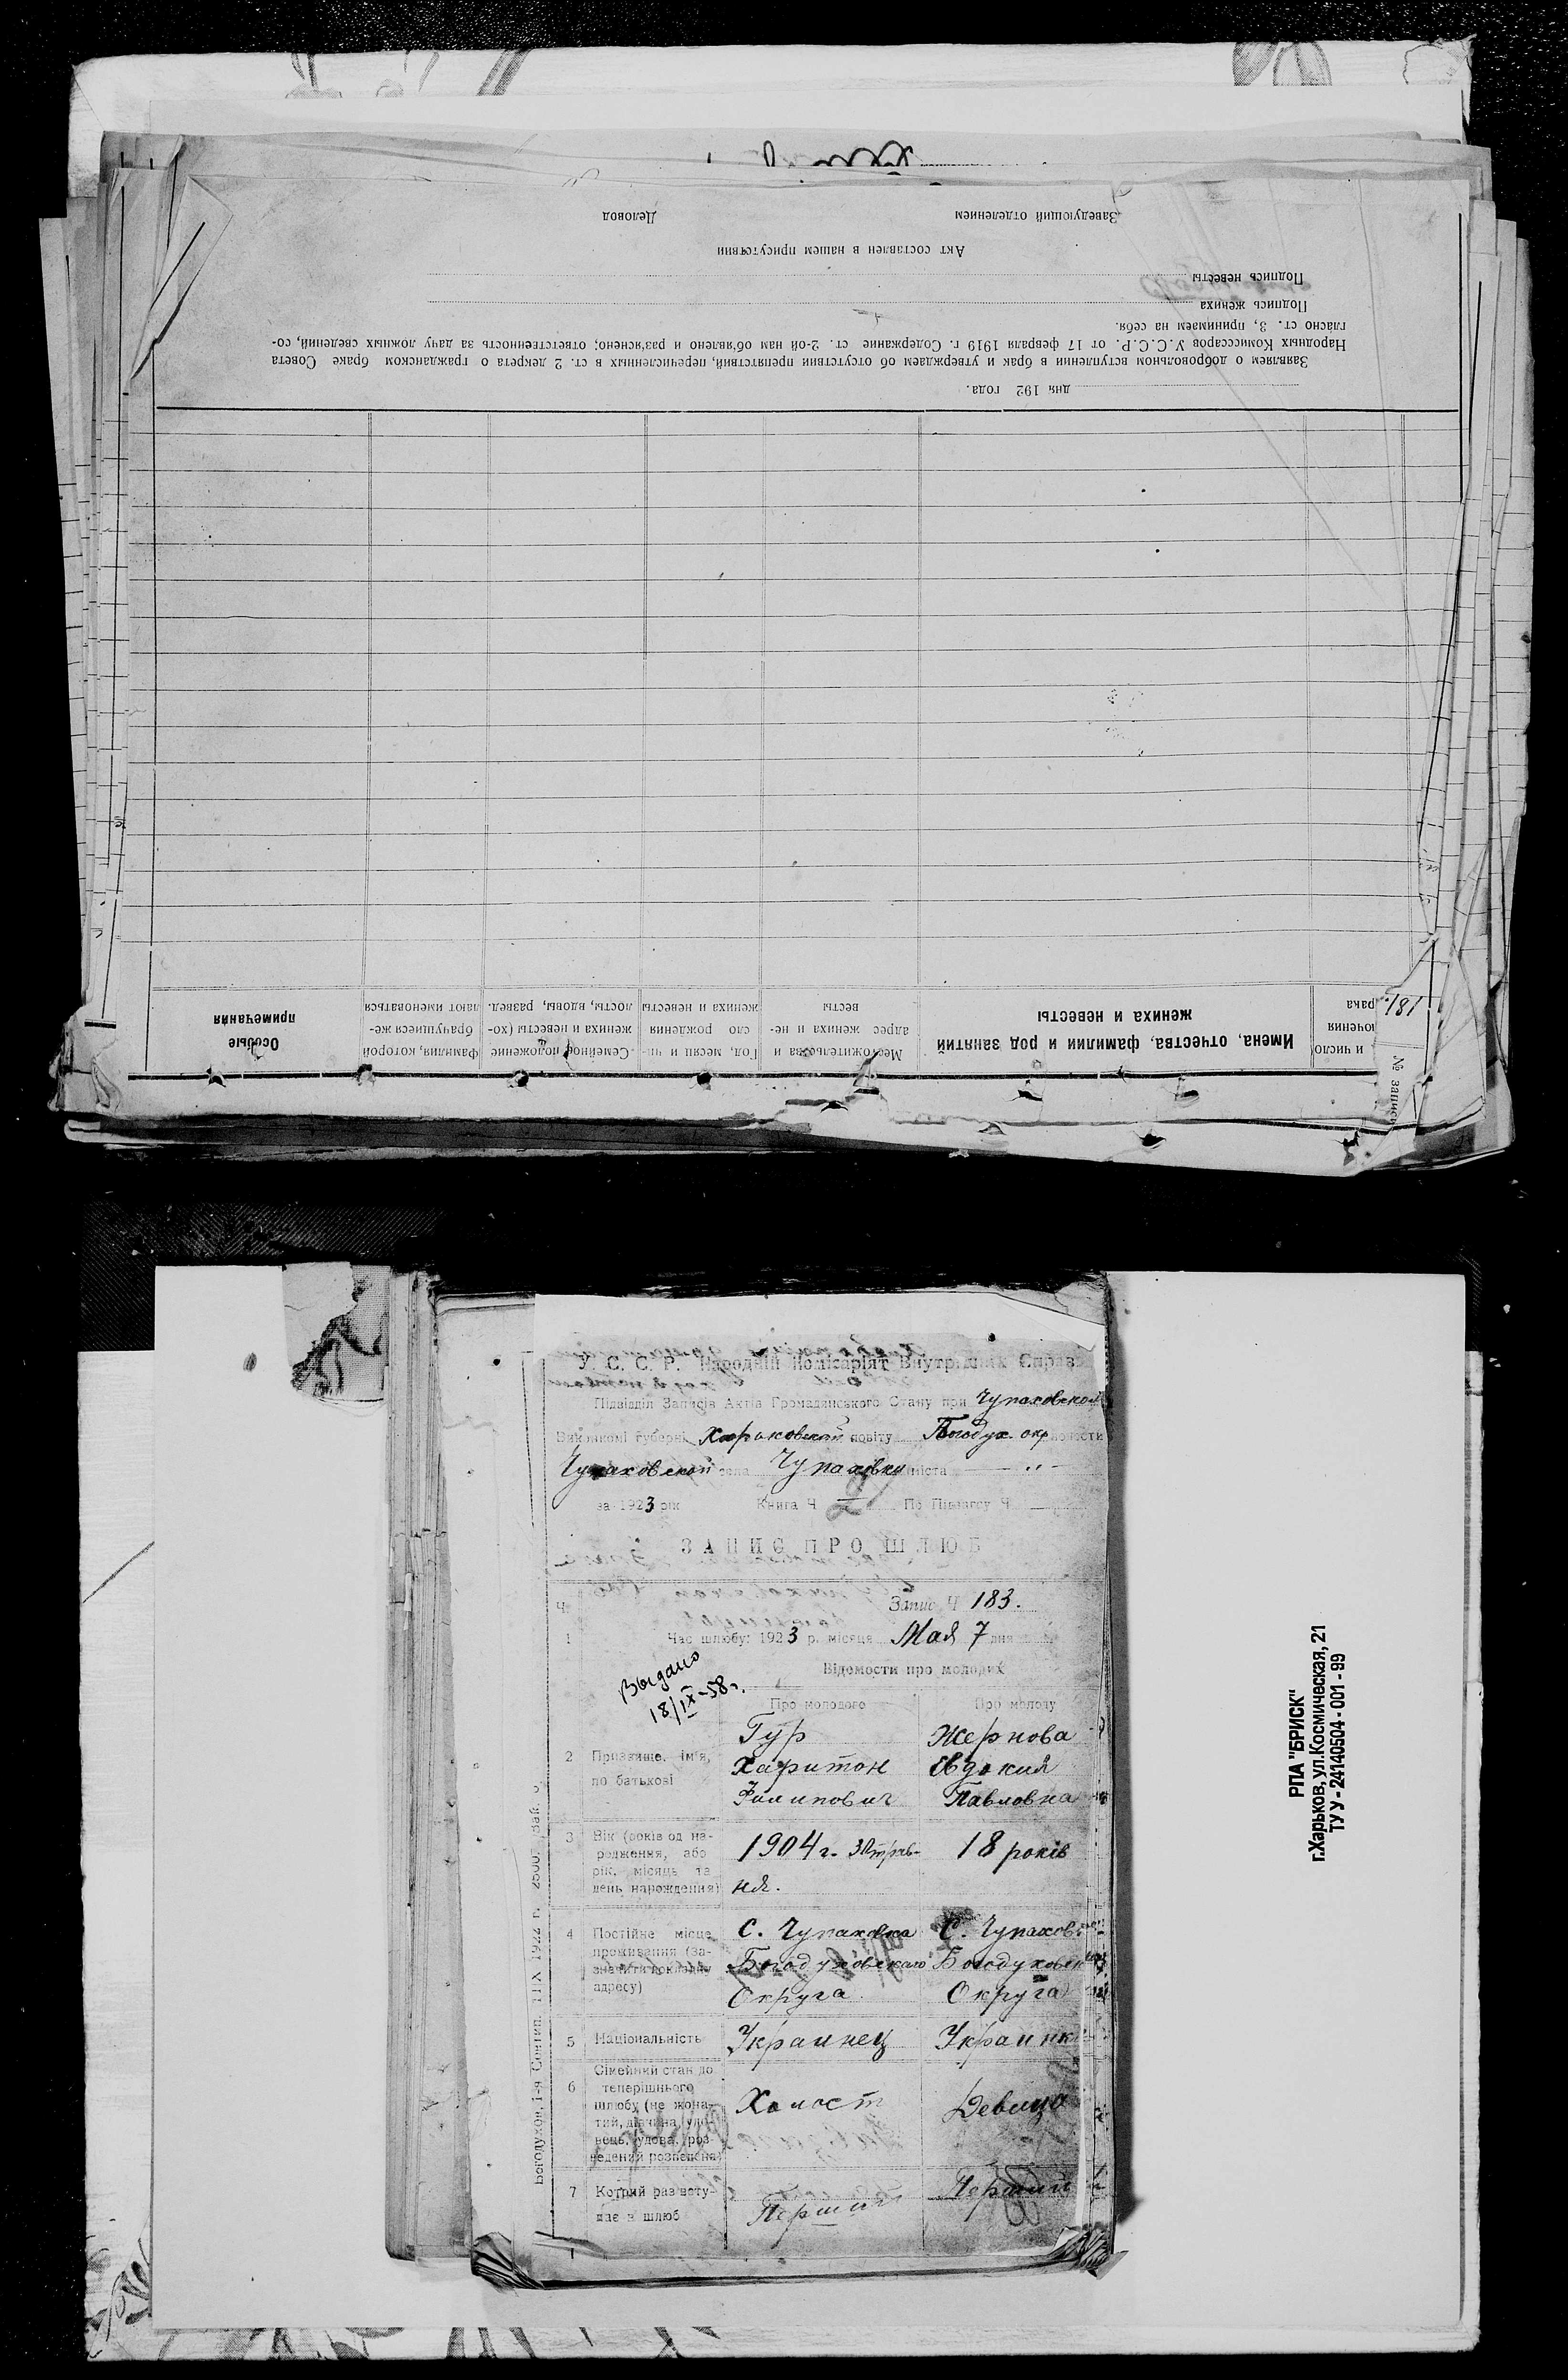 Особые
примечания
Фамилия, которой
брачущиеся же-
лают именоваться
Семейное положение
жениха и невесты (хо-
лосты, вдовы, развед.
Год, месяц и чи-
сло рождения
жениха и невесты
Местожительства и
адрес жениха и не-
весты
Имена, отчества, фамилии и род занятий
жениха и невесты
и число
181
дня 192 года.
Заявляем о добровольном вступлении в брак и утверждаем об отсутствии препятствий, перечисленных в ст. 2 декрета о гражданском браке Совета
Народных Комиссаров У.С.С.Р. от 17 февраля 1919 г. Содержание ст. 2-ой нам об'явлено и раз'яснено; ответственность за дачу ложных сведений, со-
гласно ст. 3, принимаем на себя.
Подпись жениха
Подпись невесты
Акт составлен в нашем присутствии
Заведующий отделением Деловод
У. С. С. Р. Народній Комісаріят Внутрішніх Справ
Підвідділ Записів Актів Громадянського Стану при Чупаховском
Виконкомі губерні Харьковской повіту Богодух. окр волости
Чупаховской села Чупаховка міста — „ —
за 1923 рік Книга Ч По Пінвагсу Ч
ЗАПИС ПРО ШЛЮБ
Ч. Запис Ч 183.
1 Час шлюбу: 1923 р. місяця Мая 7 дня
Выдано
18/IX-58г.
Відомости про молодих
Про молодого Про молоду
2 Призвище, ім'я,
по батькові
Гур
Харитон
Филипович
Жернова
Евдокия
Павловна
3 Вік (років од на-
родження, або
рік, місяць та
день нарождення)
1904 г. 30 трав-
ня.
18 років
4 Постійне місце
проживання (за-
значити докладну
адресу)
С. Чупаховка
Богодуховскаго
Округа
С. Чупахов
Богодуховск
Округа
5 Національність Украинец Украинк
6 Сімейний стан до
теперішнього
шлюбу (не жона-
тий, дівчина, удо-
вець, удова, роз-
ведений розведена)
Холост
Девица
7 Котрий раз всту-
пає в шлюб
Перший
Перший
РПА "БРИСК"
г.Харьков, ул.Космическая, 21
ТУ У - 24140504 - 001 - 99